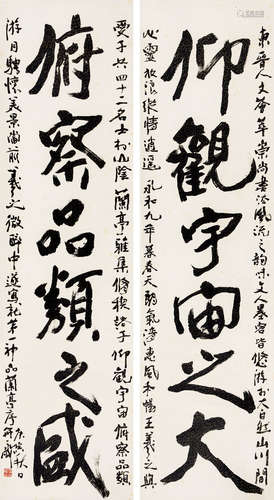 東晉人文薈萃崇尚書法風流之韻時文人墨客皆悠游於自然山川間
仰觀宇宙之大
心靈放浪縱情逍遙永和九年暮春天朗氣清惠風和暢王羲之與
愛子共四十二名士於山陰蘭亭雅集修禊諸子仰觀宇宙俯察品類
俯察品類之盛
游目騁懷美景當前羲之微醉中遂寫就第一神品蘭亭序